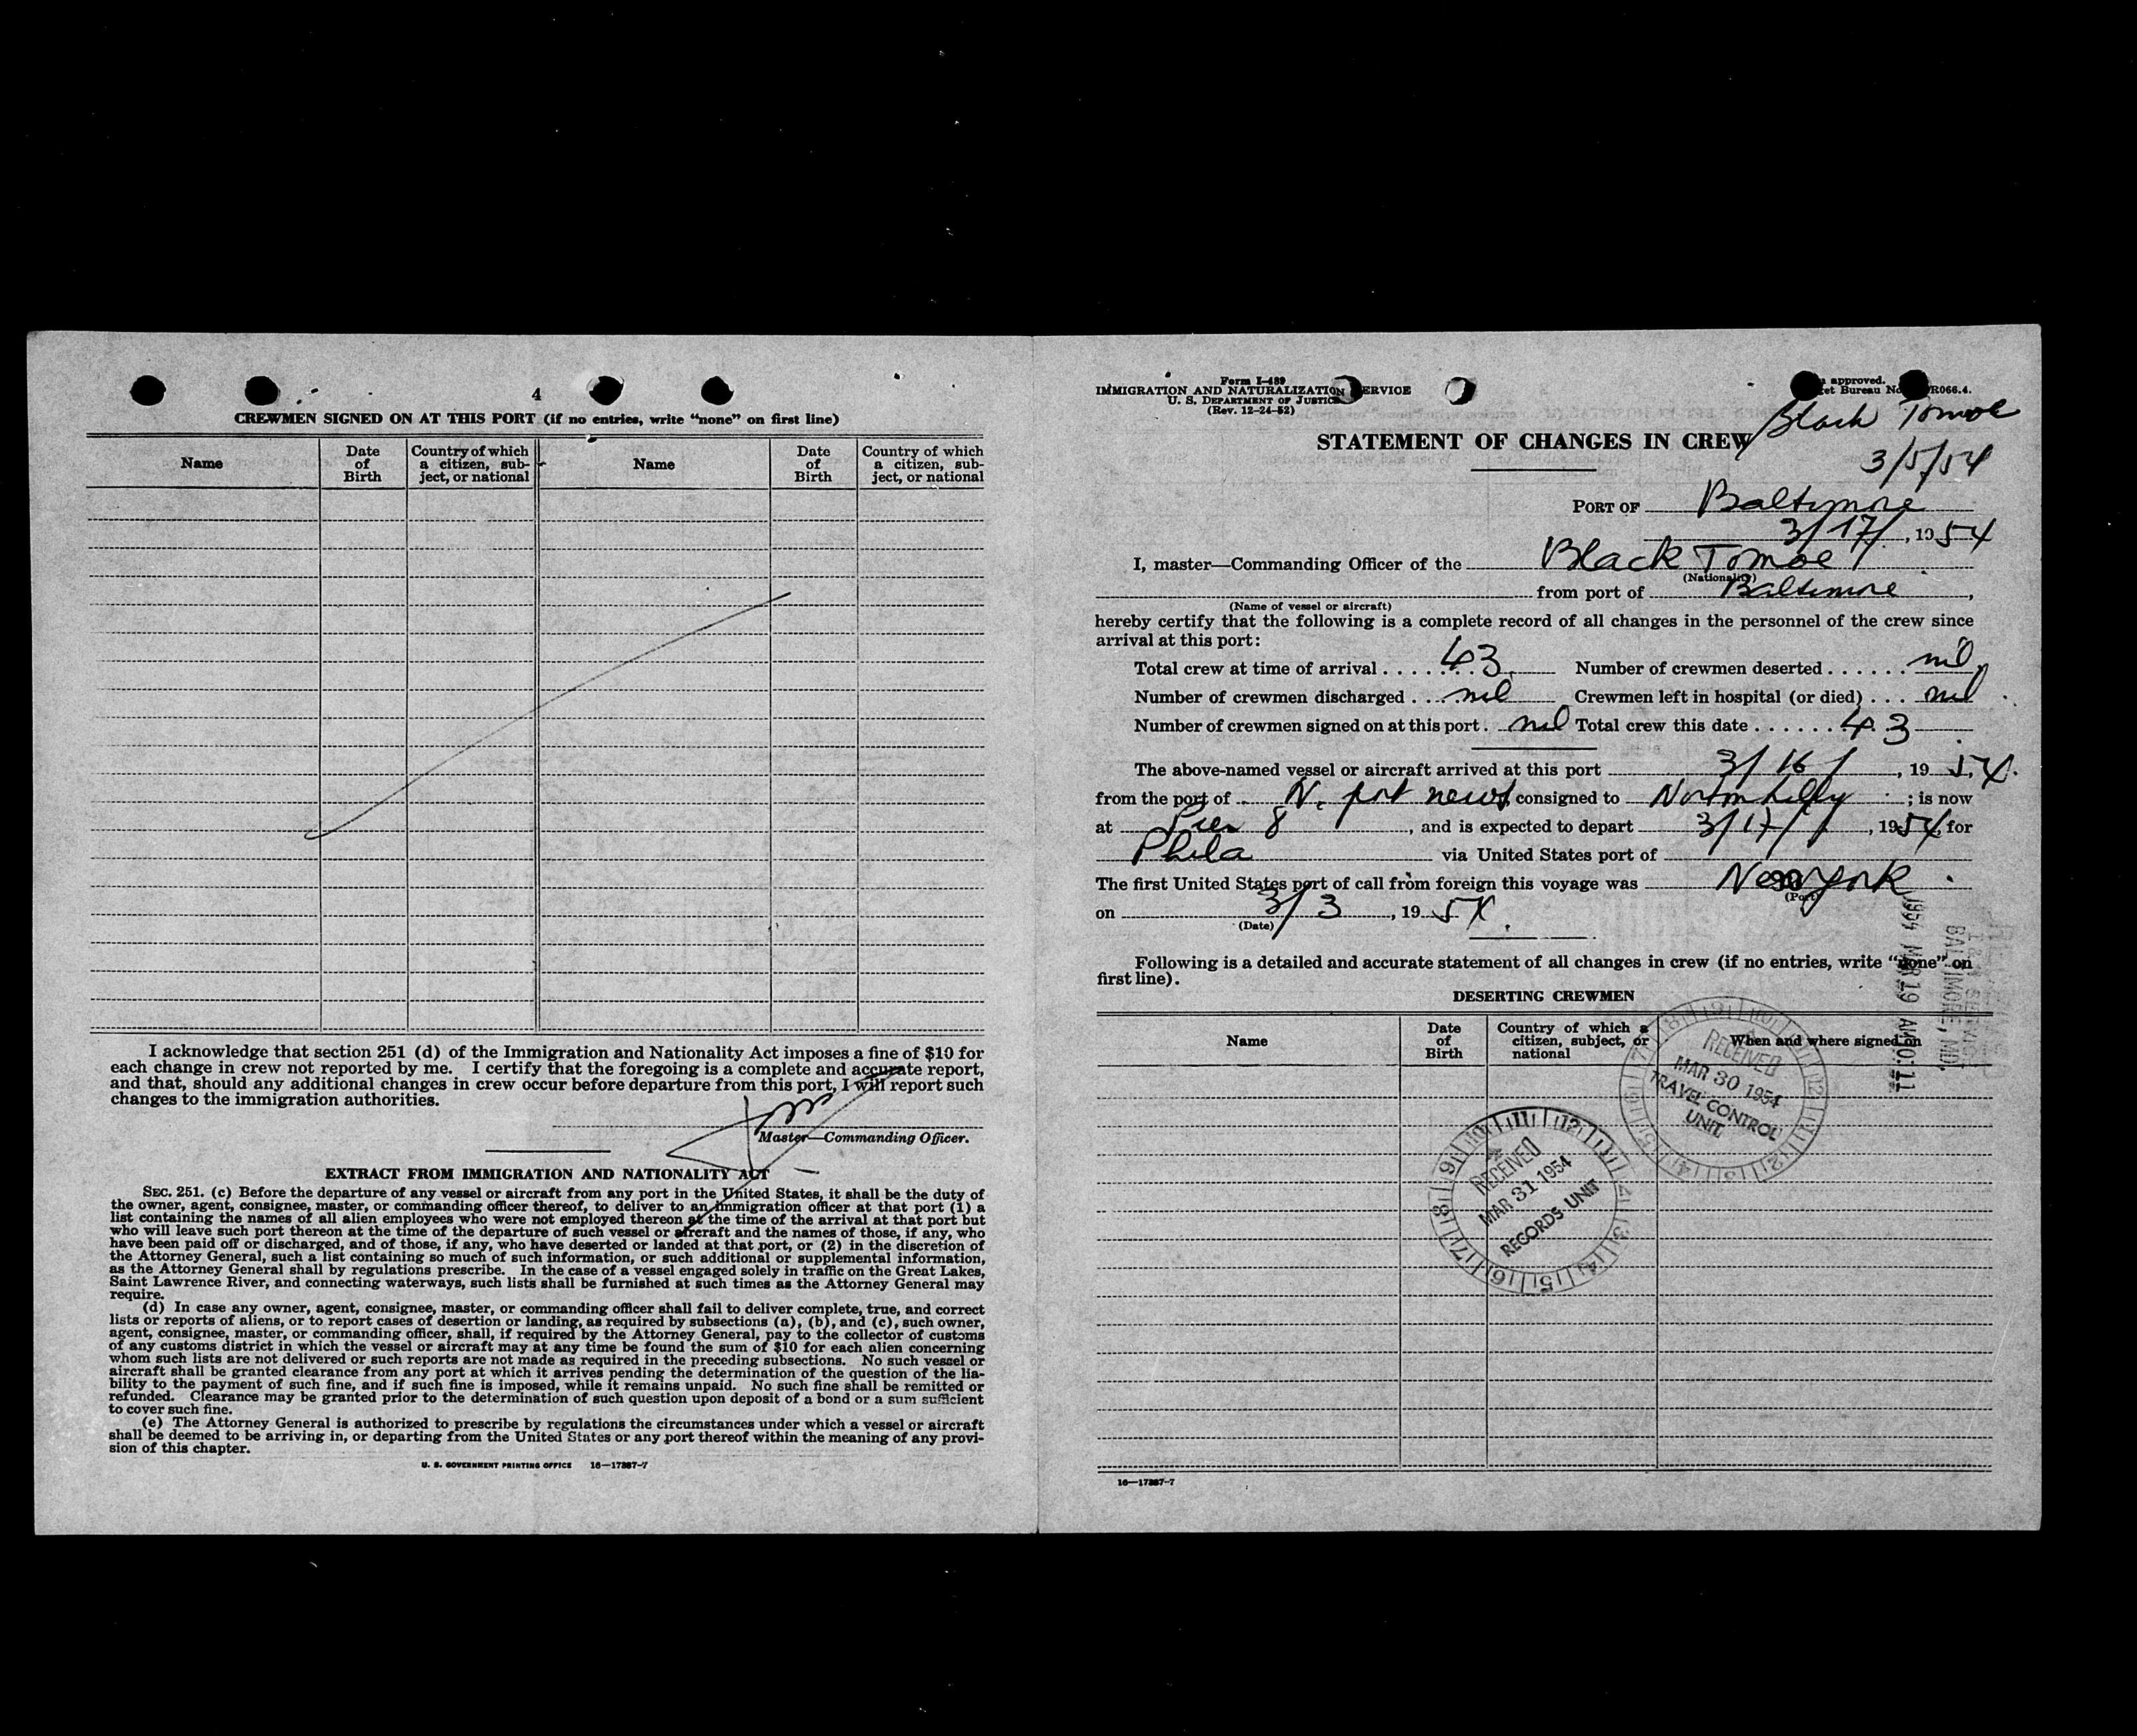 4
CREWMEN SIGNED ON AT THIS PORT (if no entries, write “none” on first line)
Name
Date of Birth
Country of which a citizen, sub-ject, or national
Name
Date of Birth
Country of which a citizen, sub-ject, or national
I acknowledge that section 251 (d) of the Immigration and Nationality Act imposes a fine of $10 for
each change in crew not reported by me. I certify that the foregoing is a complete and accurate report,
and that, should any additional changes in crew occur before departure from this port, I will report such
changes to the immigration authorities.
Master—Commanding Officer.
EXTRACT FROM IMMIGRATION AND NATIONALITY ACT
SEC. 251. (c) Before the departure of any vessel or aircraft from any port in the United States, it shall be the duty of
the owner, agent, consignee, master, or commanding officer thereof, to deliver to an immigration officer at that port (1) a
list containing the names of all alien employees who were not employed thereon at the time of the arrival at that port but
who will leave such port thereon at the time of the departure of such vessel or aircraft and the names of those, if any, who
have been paid off or discharged, and of those, if any, who have deserted or landed at that port, or (2) in the discretion of
the Attorney General, such a list containing so much of such information, or such additional or supplemental information,
as the Attorney General shall by regulations prescribe. In the case of a vessel engaged solely in traffic on the Great Lakes,
Saint Lawrence River, and connecting waterways, such lists shall be furnished at such times as the Attorney General may
require.
(d) In case any owner, agent, consignee, master, or commanding officer shall fail to deliver complete, true, and correct
lists or reports of aliens, or to report cases of desertion or landing, as required by subsections (a), (b), and (c), such owner,
agent, consignee, master, or commanding officer, shall, if required by the Attorney General, pay to the collector of customs
of any customs district in which the vessel or aircraft may at any time be found the sum of $10 for each alien concerning
whom such lists are not delivered or such reports are not made as required in the preceding subsections. No such vessel or
aircraft shall be granted clearance from any port at which it arrives pending the determination of the question of the lia-
bility to the payment of such fine, and if such fine is imposed, while it remains unpaid. No such fine shall be remitted or
refunded. Clearance may be granted prior to the determination of such question upon deposit of a bond or a sum sufficient
to cover such fine.
(e) The Attorney General is authorized to prescribe by regulations the circumstances under which a vessel or aircraft
shall be deemed to be arriving in, or departing from the United States or any port thereof within the meaning of any provi-
sion of this chapter.
U. S. GOVERNMENT PRINTING OFFICE 16—17887-7
Form I-489
IMMIGRATION AND NATURALIZATION SERVICE
U. S. DEPARTMENT OF JUSTICE
(Rev. 12-24-52)
approved.
et Bureau No. R066.4.
Black Tomoe
3/5/54
STATEMENT OF CHANGES IN CREW
PORT OF Baltimore
3/17/, 1954
I, master—Commanding Officer of the Black Tomoe
(Nationality)
from port of Baltimore,
(Name of vessel or aircraft)
hereby certify that the following is a complete record of all changes in the personnel of the crew since
arrival at this port:
Total crew at time of arrival .... 43 Number of crewmen deserted ...... nil
Number of crewmen discharged .... nil Crewmen left in hospital (or died) ... nil
Number of crewmen signed on at this port . nil Total crew this date ...... 43
The above-named vessel or aircraft arrived at this port 3/16/, 1954.
from the port of N. port news, consigned to Norton Lilly ; is now
at Pier 8, and is expected to depart 3/17/, 1954, for
Phila via United States port of
The first United States port of call from foreign this voyage was New york.
(Port)
on 3/3, 1954.
(Date)
Following is a detailed and accurate statement of all changes in crew (if no entries, write “none” on
first line).
DESERTING CREWMEN
Name
Date of Birth
Country of which a citizen, subject, or national
When and where signed on
1954 MAR 19 AM 10:11
BALTIMORE, MD.
RECEIVED
MAR 30 1954
TRAVEL CONTROL
UNIT
RECEIVED
MAR 31 1954
RECORDS UNIT
16—17887-7